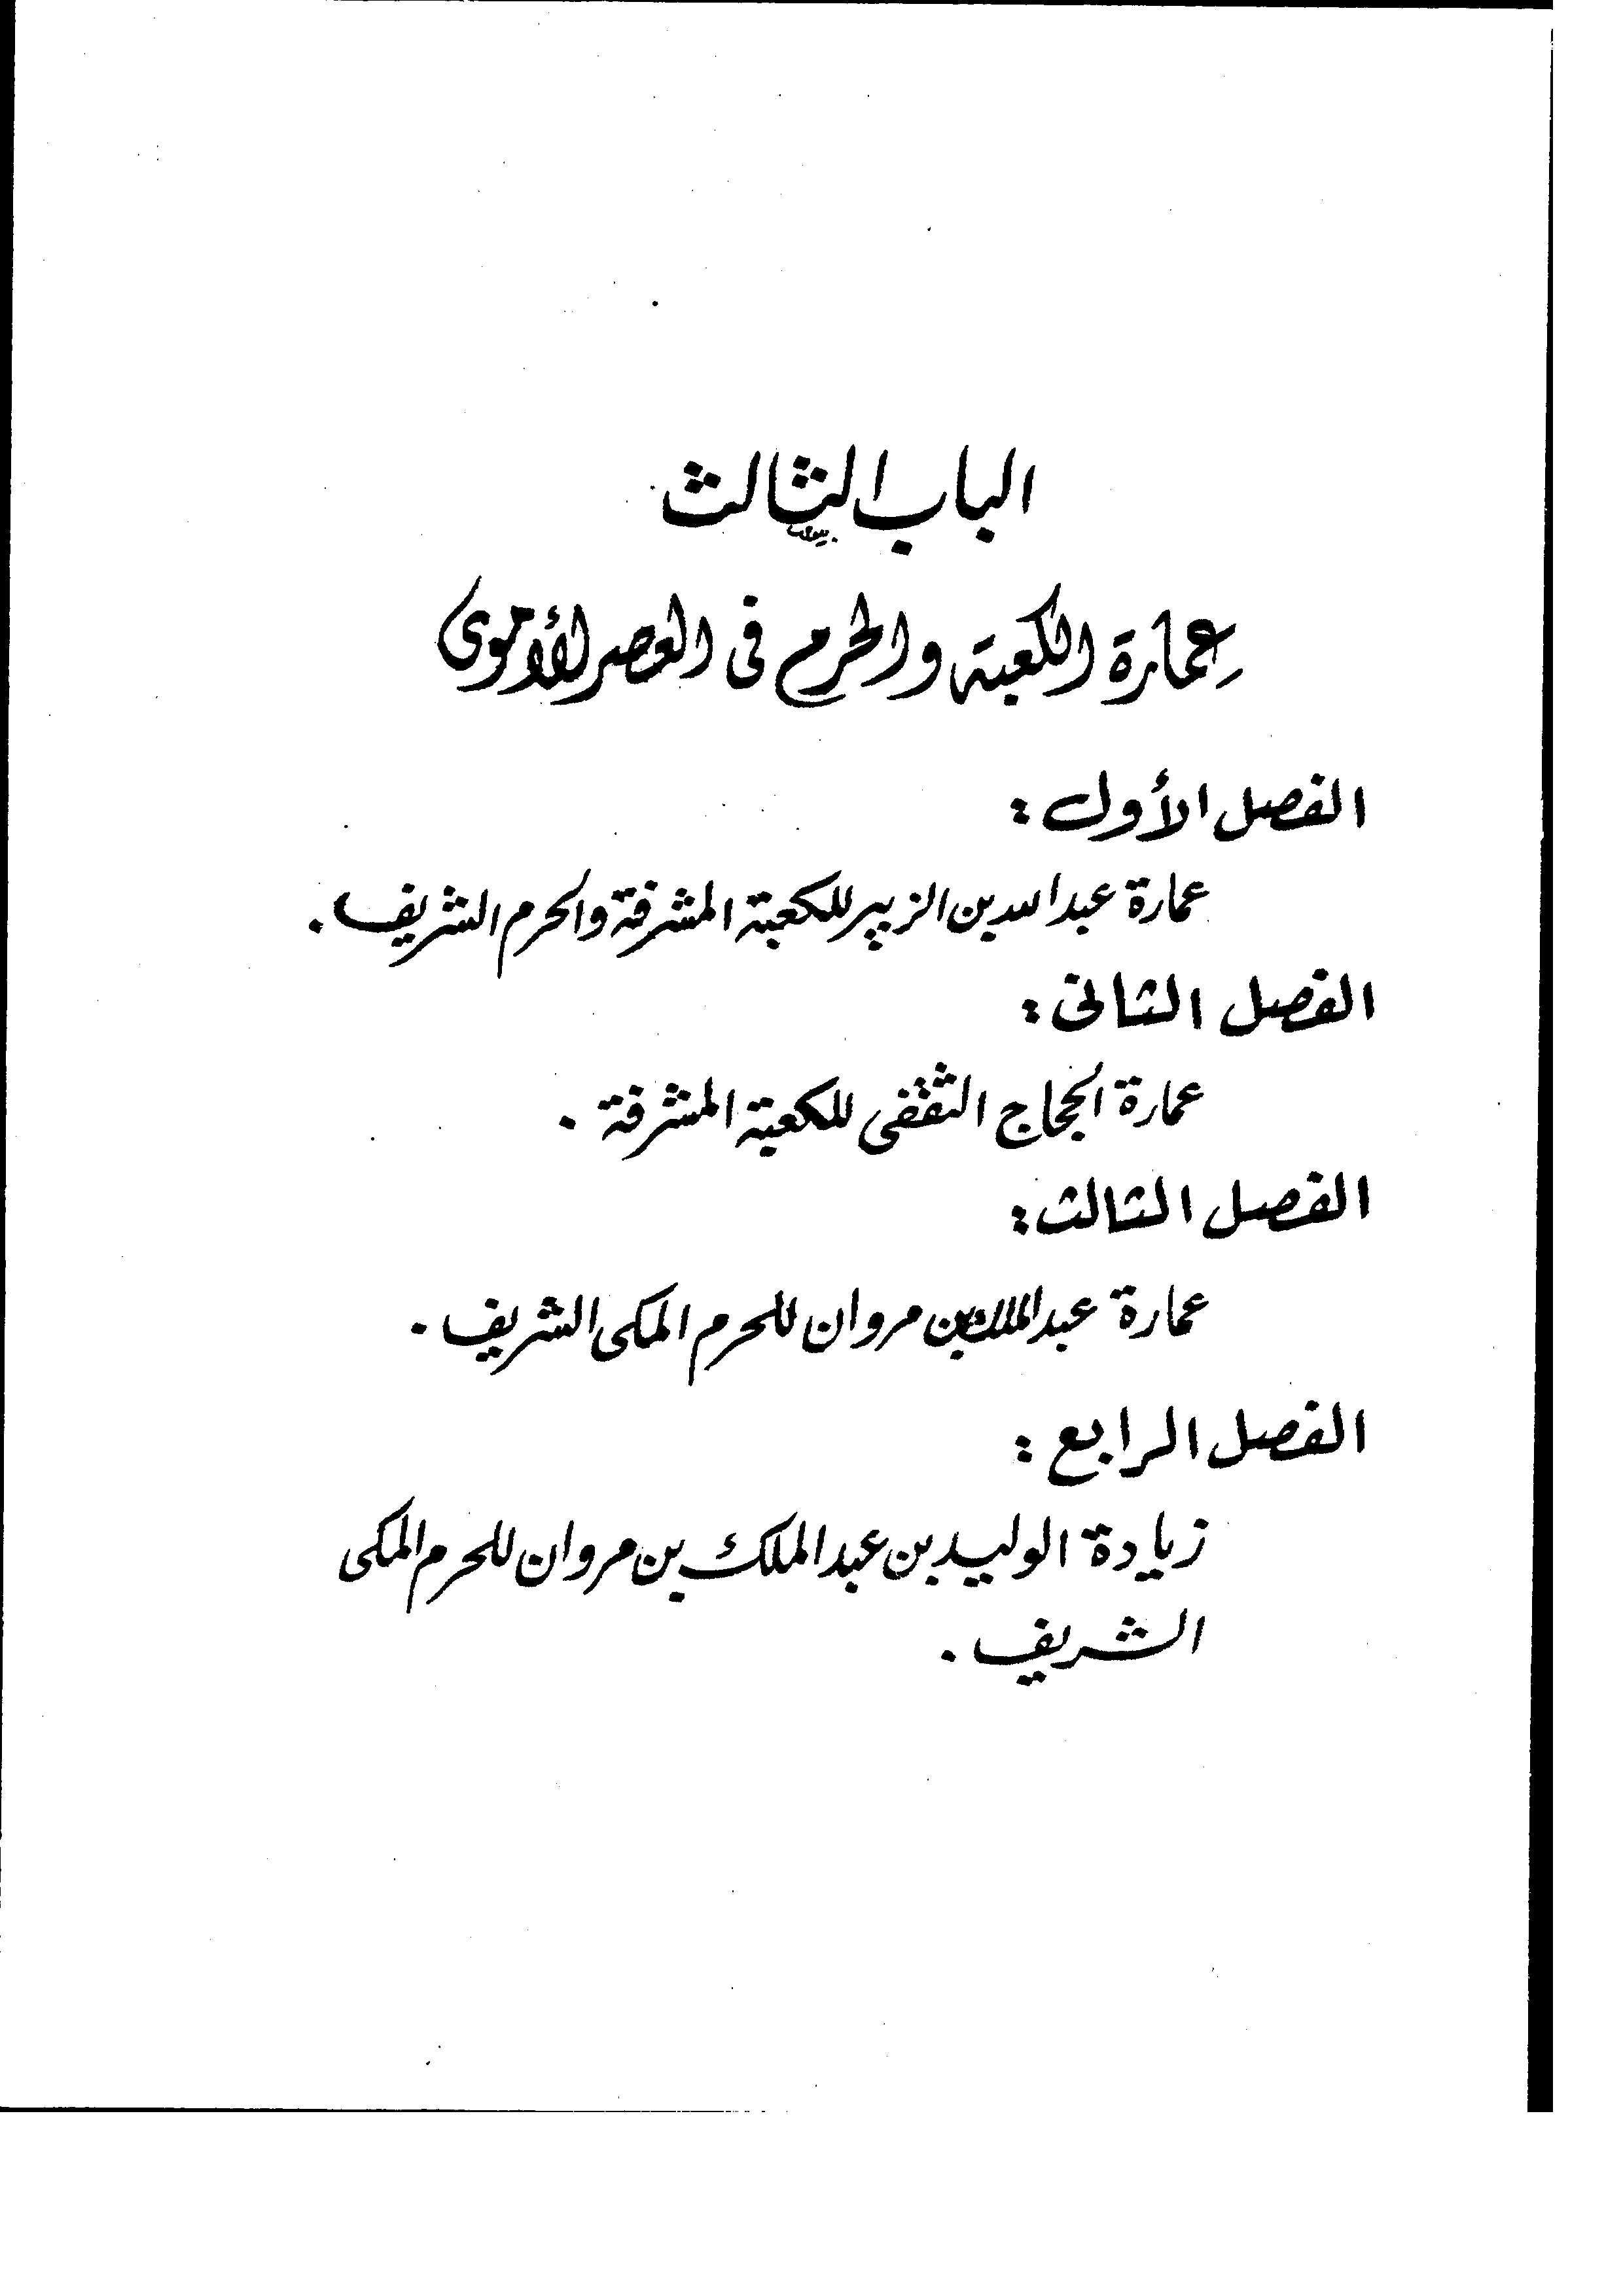 الباب الثالث
عِمارة الكعبة والحرم فى العصر الأموى
الفصل الأول :
عمارة عبد الله بن الزبير للكعبة المشرفة والحرم الشريف .
الفصل الثانى :
عمارة الحجاج الثقفى للكعبة المشرفة .
الفصل الثالث :
عمارة عبد الملك بن مروان للحرم المكى الشريف .
الفصل الرابع :
زيادة الوليد بن عبد الملك بن مروان للحرم المكى
الشريف .